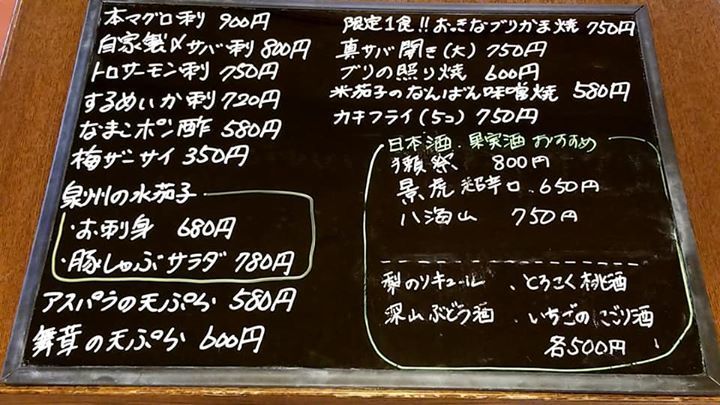 本マグロ刺 900円
自家製〆サバ刺 800円
トロサーモン刺 750円
するめいか刺 720円
なまこポン酢 580円
梅ザーサイ 350円
泉州の水茄子
・お刺身 680円
・豚しゃぶサラダ 780円
アスパラの天ぷら 580円
舞茸の天ぷら 600円
限定1食!! おっきなブリかま焼 750円
真サバ開き(大) 750円
ブリの照り焼 600円
米茄子のなんばん味噌焼 580円
カキフライ(5コ) 750円
日本酒・果実酒 おすすめ
獺祭 800円
景虎 超辛口 650円
八海山 750円
梨のリキュール 、とろこく桃酒
深山ぶどう酒 、いちごのにごり酒
各500円